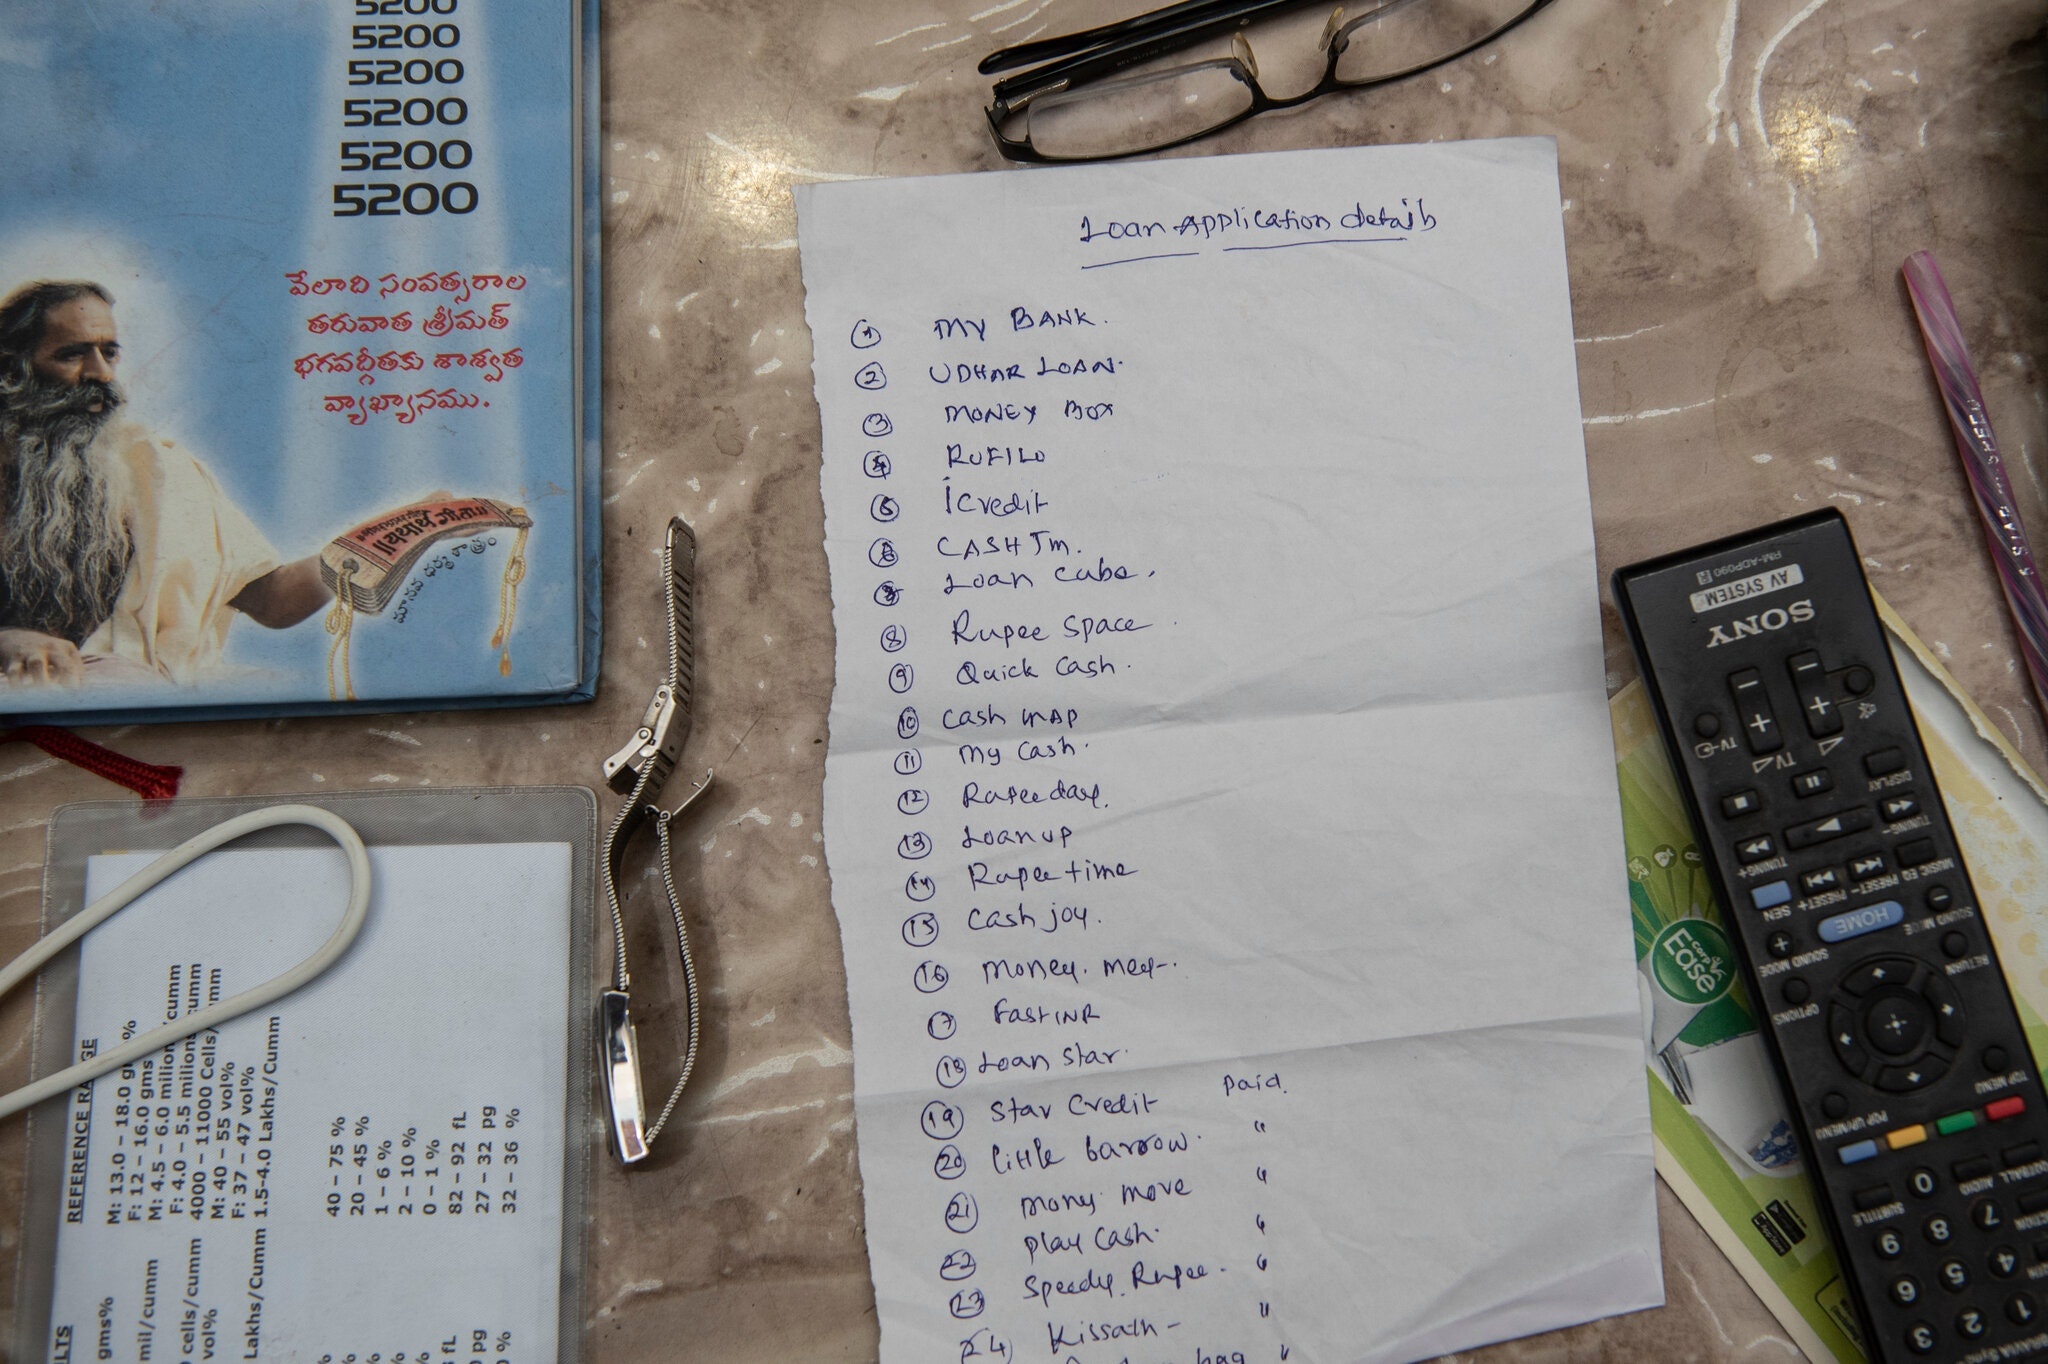 5200
5200
5200
5200
5200
5200
వేలాది సంవత్సరాల
తరువాత శ్రీమత్
భగవద్గీతకు శాశ్వత
వ్యాఖ్యానము.
యథార్థ గీతా
మానవ ధర్మ శాస్త్రం
Loan Application details
1 MY BANK.
2 UDHAR LOAN.
3 MONEY BOX
4 RUFILO
5 iCredit
6 CASHTM.
7 Loan cube.
8 Rupee space
9 Quick cash.
10 cash map
11 my cash.
12 Rupeeday.
13 Loan up
14 Rupee time
15 cash joy.
16 money.
17 FastINR
18 Loan star.
19 star credit paid.
20 little barrow. "
21 money move "
22 play cash. "
23 speedy Rupee. "
24 Kissath - "
bag "
REFERENCE RANGE
M: 13.0 – 18.0 g %
F: 12 – 16.0 gms %
M: 4.5 – 6.0 milion/cumm
F: 4.0 – 5.5 milions/cumm
4000 – 11000 Cells/cumm
M: 40 – 55 vol%
F: 37 – 47 vol%
1.5-4.0 Lakhs/Cumm
40 – 75 %
20 – 45 %
1 – 6 %
2 – 10 %
0 – 1 %
82 – 92 fL
27 – 32 pg
32 – 36 %
LTS
gms%
mil/cumm
cells/cumm
vol%
Lakhs/Cumm
%
%
%
fL
pg
%
RM-ADP090
AV SYSTEM
SONY
TV
TV
DISPLAY
TUNING–
TUNING+
MUSIC EQ
PRESET–
PRESET+
SEN
HOME
SOUND MODE
SOUND MODE
RETURN
OPTIONS
TOP MENU
POP UP/MENU
FOOTBALL
AUDIO
SUBTITLE
0
9
8
7
6
5
4
3
2
1
Ease